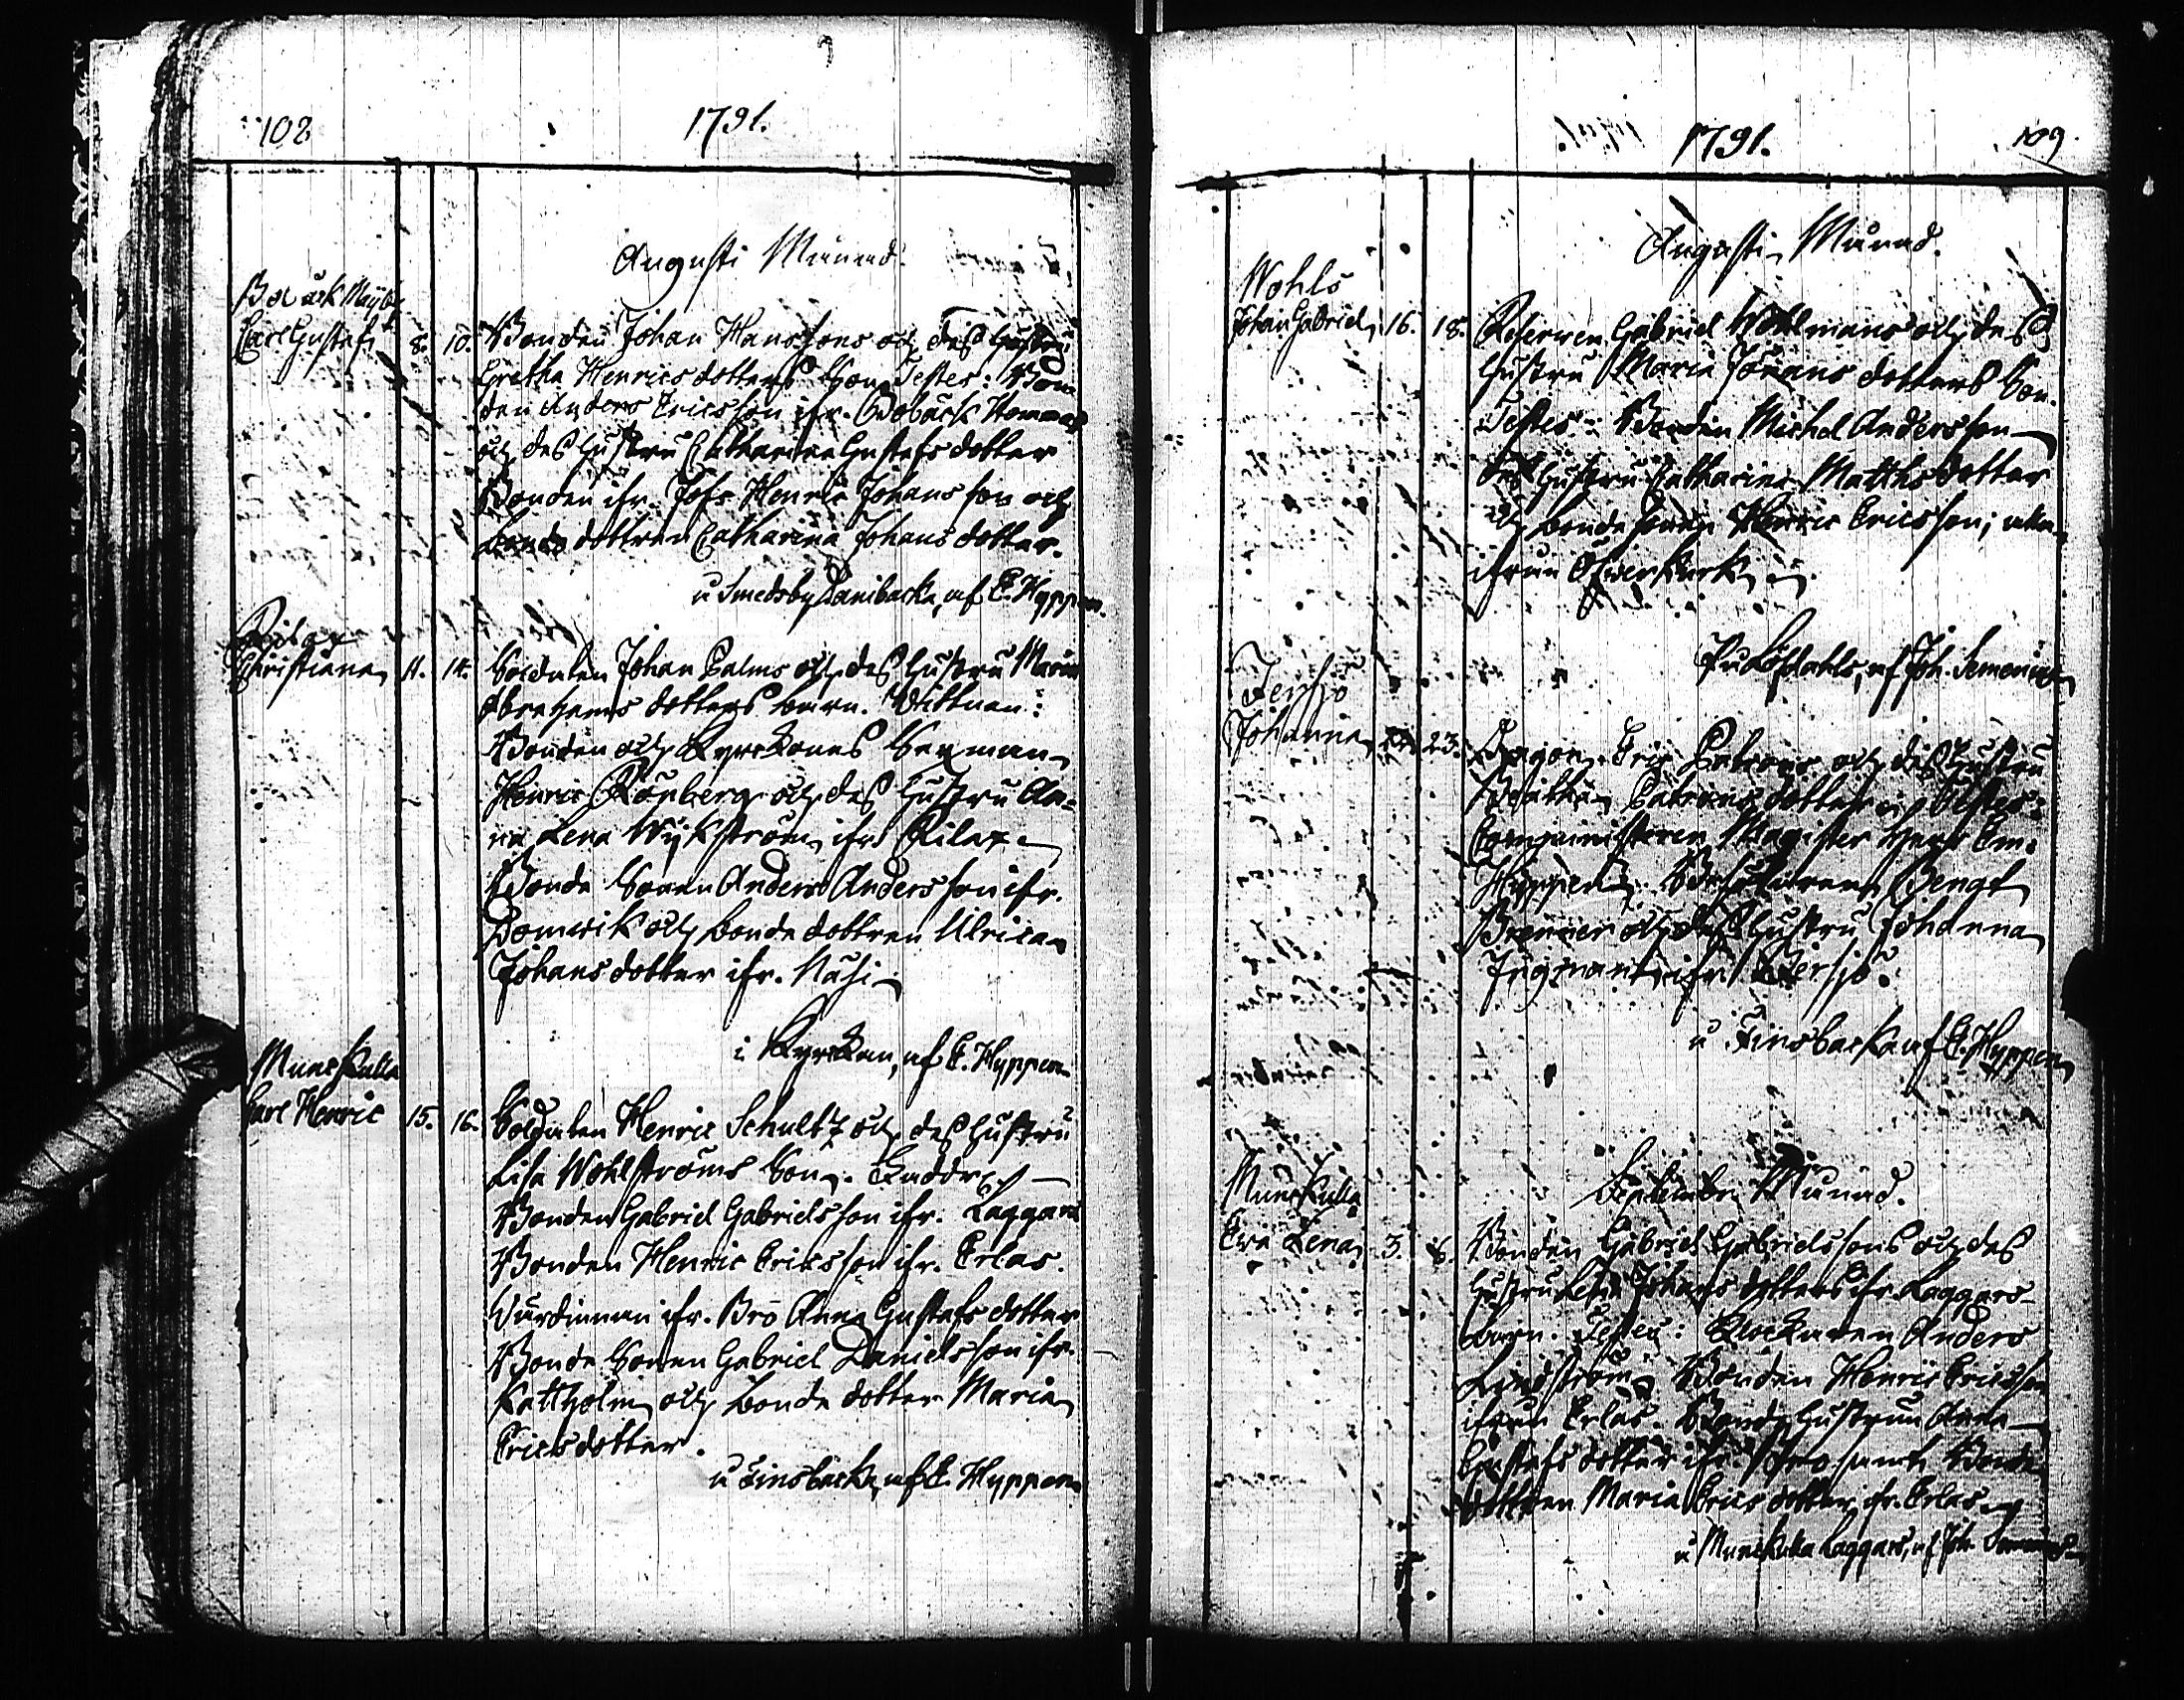 108
1791.
Augusti Månad.
Boback Nyby
Carl Gustaf 8. 10. Bonden Johan Hanssons och dess hustru
Gretha Henricsdotters Son. Testes: Bon-
den Anders Ericsson ifr. Bobäck
och dess hustru Catharina Gustafs dotter
Bonden ifr. Jofs Henric Johansson och
bonde dottren Catharina Johans dotter.
å Smedsby Danibacka, af E. Hyppen.
Rilax
Christiana 11. 14. Soldaten Johan Palms och dess hustru Maria
Abrahams dotters barn. Vittnen:
Bonden och Kyrckones Sexman
Henric Rönberg och dess hustru An-
na Lena Wijkström ifr. Rilax
Bonde Sonen Anders Andersson ifr.
Domwik och bonde dottren Ulrica
Johans dotter ifr. Näse
i Kyrckan, af E. Hyppen
Munskulla
Carl Henric 15. 16. Soldaten Henric Schultz och dess hustru
Lisa Wohlströms Son. Faddrar
Bonden Gabriel Gabrielsson ifr. Laggars
Bonden Henric Ericsson ifr. Erlas.
Värdinnan ifr. Bro Anna Gustafs dotter
Bonde Sonen Gabriel Danielsson ifr.
Kattholm och bonde dotter Maria
Ericsdotter.
å Finsbacka, af E. Hyppen
1791.
109.
Augusti Månad.
Wohls
Johan Gabriel 16. 18. Reserven Gabriel Wohlmans och dess
hustru Maria Johans dotters Son.
Testes: Bonden Michel Andersson
dess hustru Catharina Matths dotter
och bonde sonen Henric Ericsson; alla
ifrån Öfwerkurk
På Löfdahls, af Joh.
Johanna 23. Dragon. Fris och dess hustru
Testes:
Comministeren Magister Herr Em.
Hyppen. Bengt
Brenner och dess hustru Johanna
ifr.
å Finsbacka af E. Hyppen
September Månad.
Munskulla
Eva Lena 3. 6. Bonden Gabriel Gabrielssons och dess
hustru Lena Johans dotters ifr. Laggars
barn. Testes: Klockaren Anders
Lindström, Bonden Henric Ericsson
ifrån Erlas. Bonde hustrun Anna
Gustafs dotter ifr. Bro samt Bonde
dottren Maria Erics dotter ifr. Erlas
å Munskulla Laggars, af Joh.